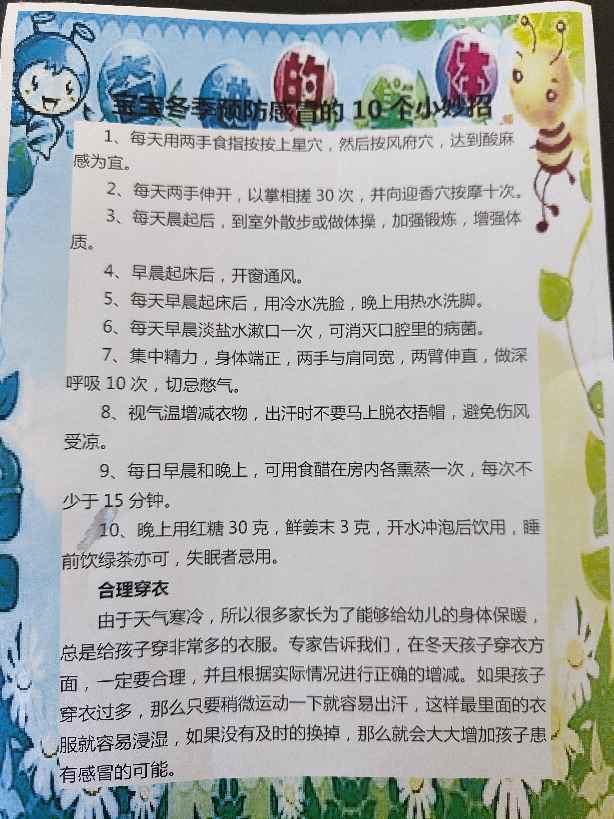 的 体
宝宝冬季预防感冒的10个小妙招
1、每天用两手食指按按上星穴，然后按风府穴，达到酸麻
感为宜。
2、每天两手伸开，以掌相搓30次，并向迎香穴按摩十次。
3、每天晨起后，到室外散步或做体操，加强锻炼，增强体
质。
4、早晨起床后，开窗通风。
5、每天早晨起床后，用冷水洗脸，晚上用热水洗脚。
6、每天早晨淡盐水漱口一次，可消灭口腔里的病菌。
7、集中精力，身体端正，两手与肩同宽，两臂伸直，做深
呼吸10次，切忌憋气。
8、视气温增减衣物，出汗时不要马上脱衣捂帽，避免伤风
受凉。
9、每日早晨和晚上，可用食醋在房内各熏蒸一次，每次不
少于15分钟。
10、晚上用红糖30克，鲜姜末3克，开水冲泡后饮用，睡
前饮绿茶亦可，失眠者忌用。
合理穿衣
由于天气寒冷，所以很多家长为了能够给幼儿的身体保暖，
总是给孩子穿非常多的衣服。专家告诉我们，在冬天孩子穿衣方
面，一定要合理，并且根据实际情况进行正确的增减。如果孩子
穿衣过多，那么只要稍微运动一下就容易出汗，这样最里面的衣
服就容易浸湿，如果没有及时的换掉，那么就会大大增加孩子患
有感冒的可能。